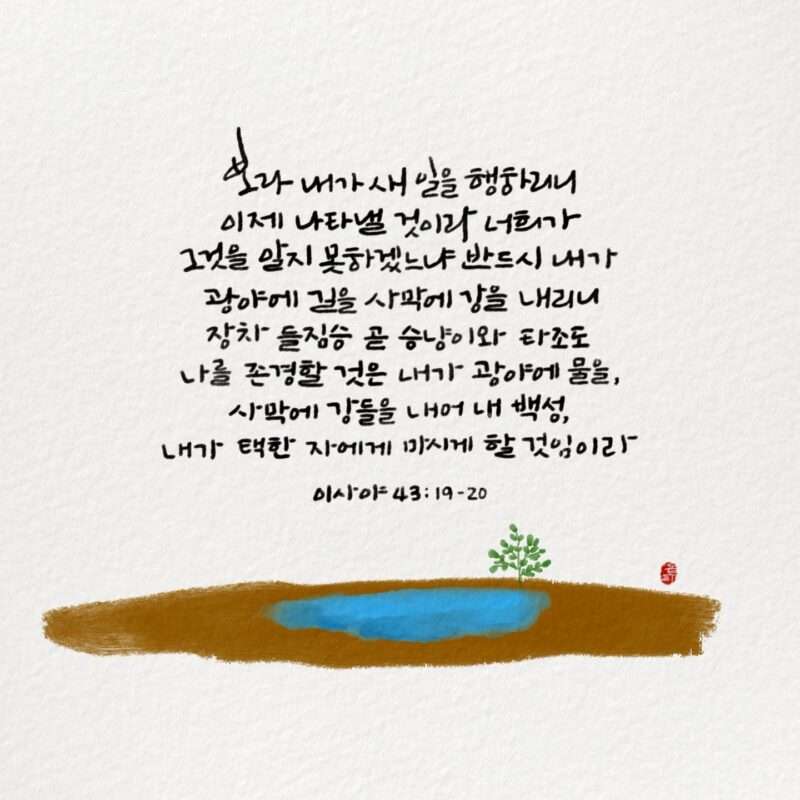 보라 내가 새 일을 행하리니
이제 나타낼 것이라 너희가
그것을 알지 못하겠느냐 반드시 내가
광야에 길을 사막에 강을 내리니
장차 들짐승 곧 승냥이와 타조도
나를 존경할 것은 내가 광야에 물을,
사막에 강들을 내어 내 백성,
내가 택한 자에게 마시게 할 것임이라
이사야 43:19-20